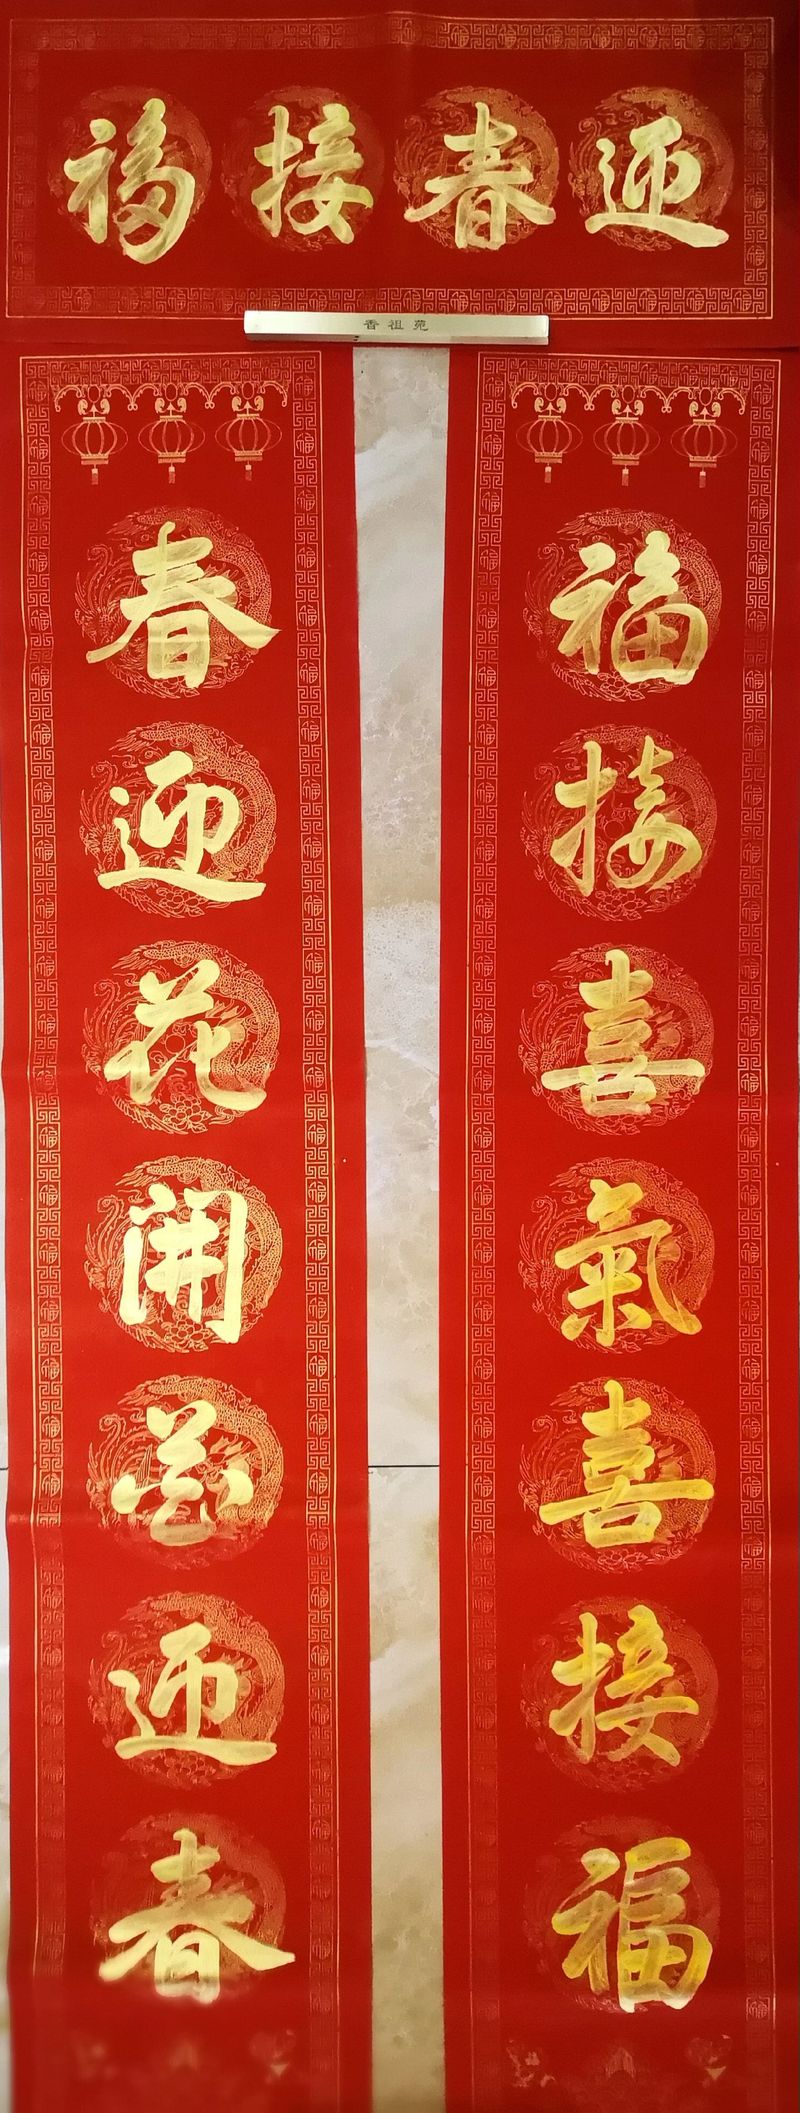 迎春接福
香祖苑
福接喜氣喜接福
春迎花開花迎春